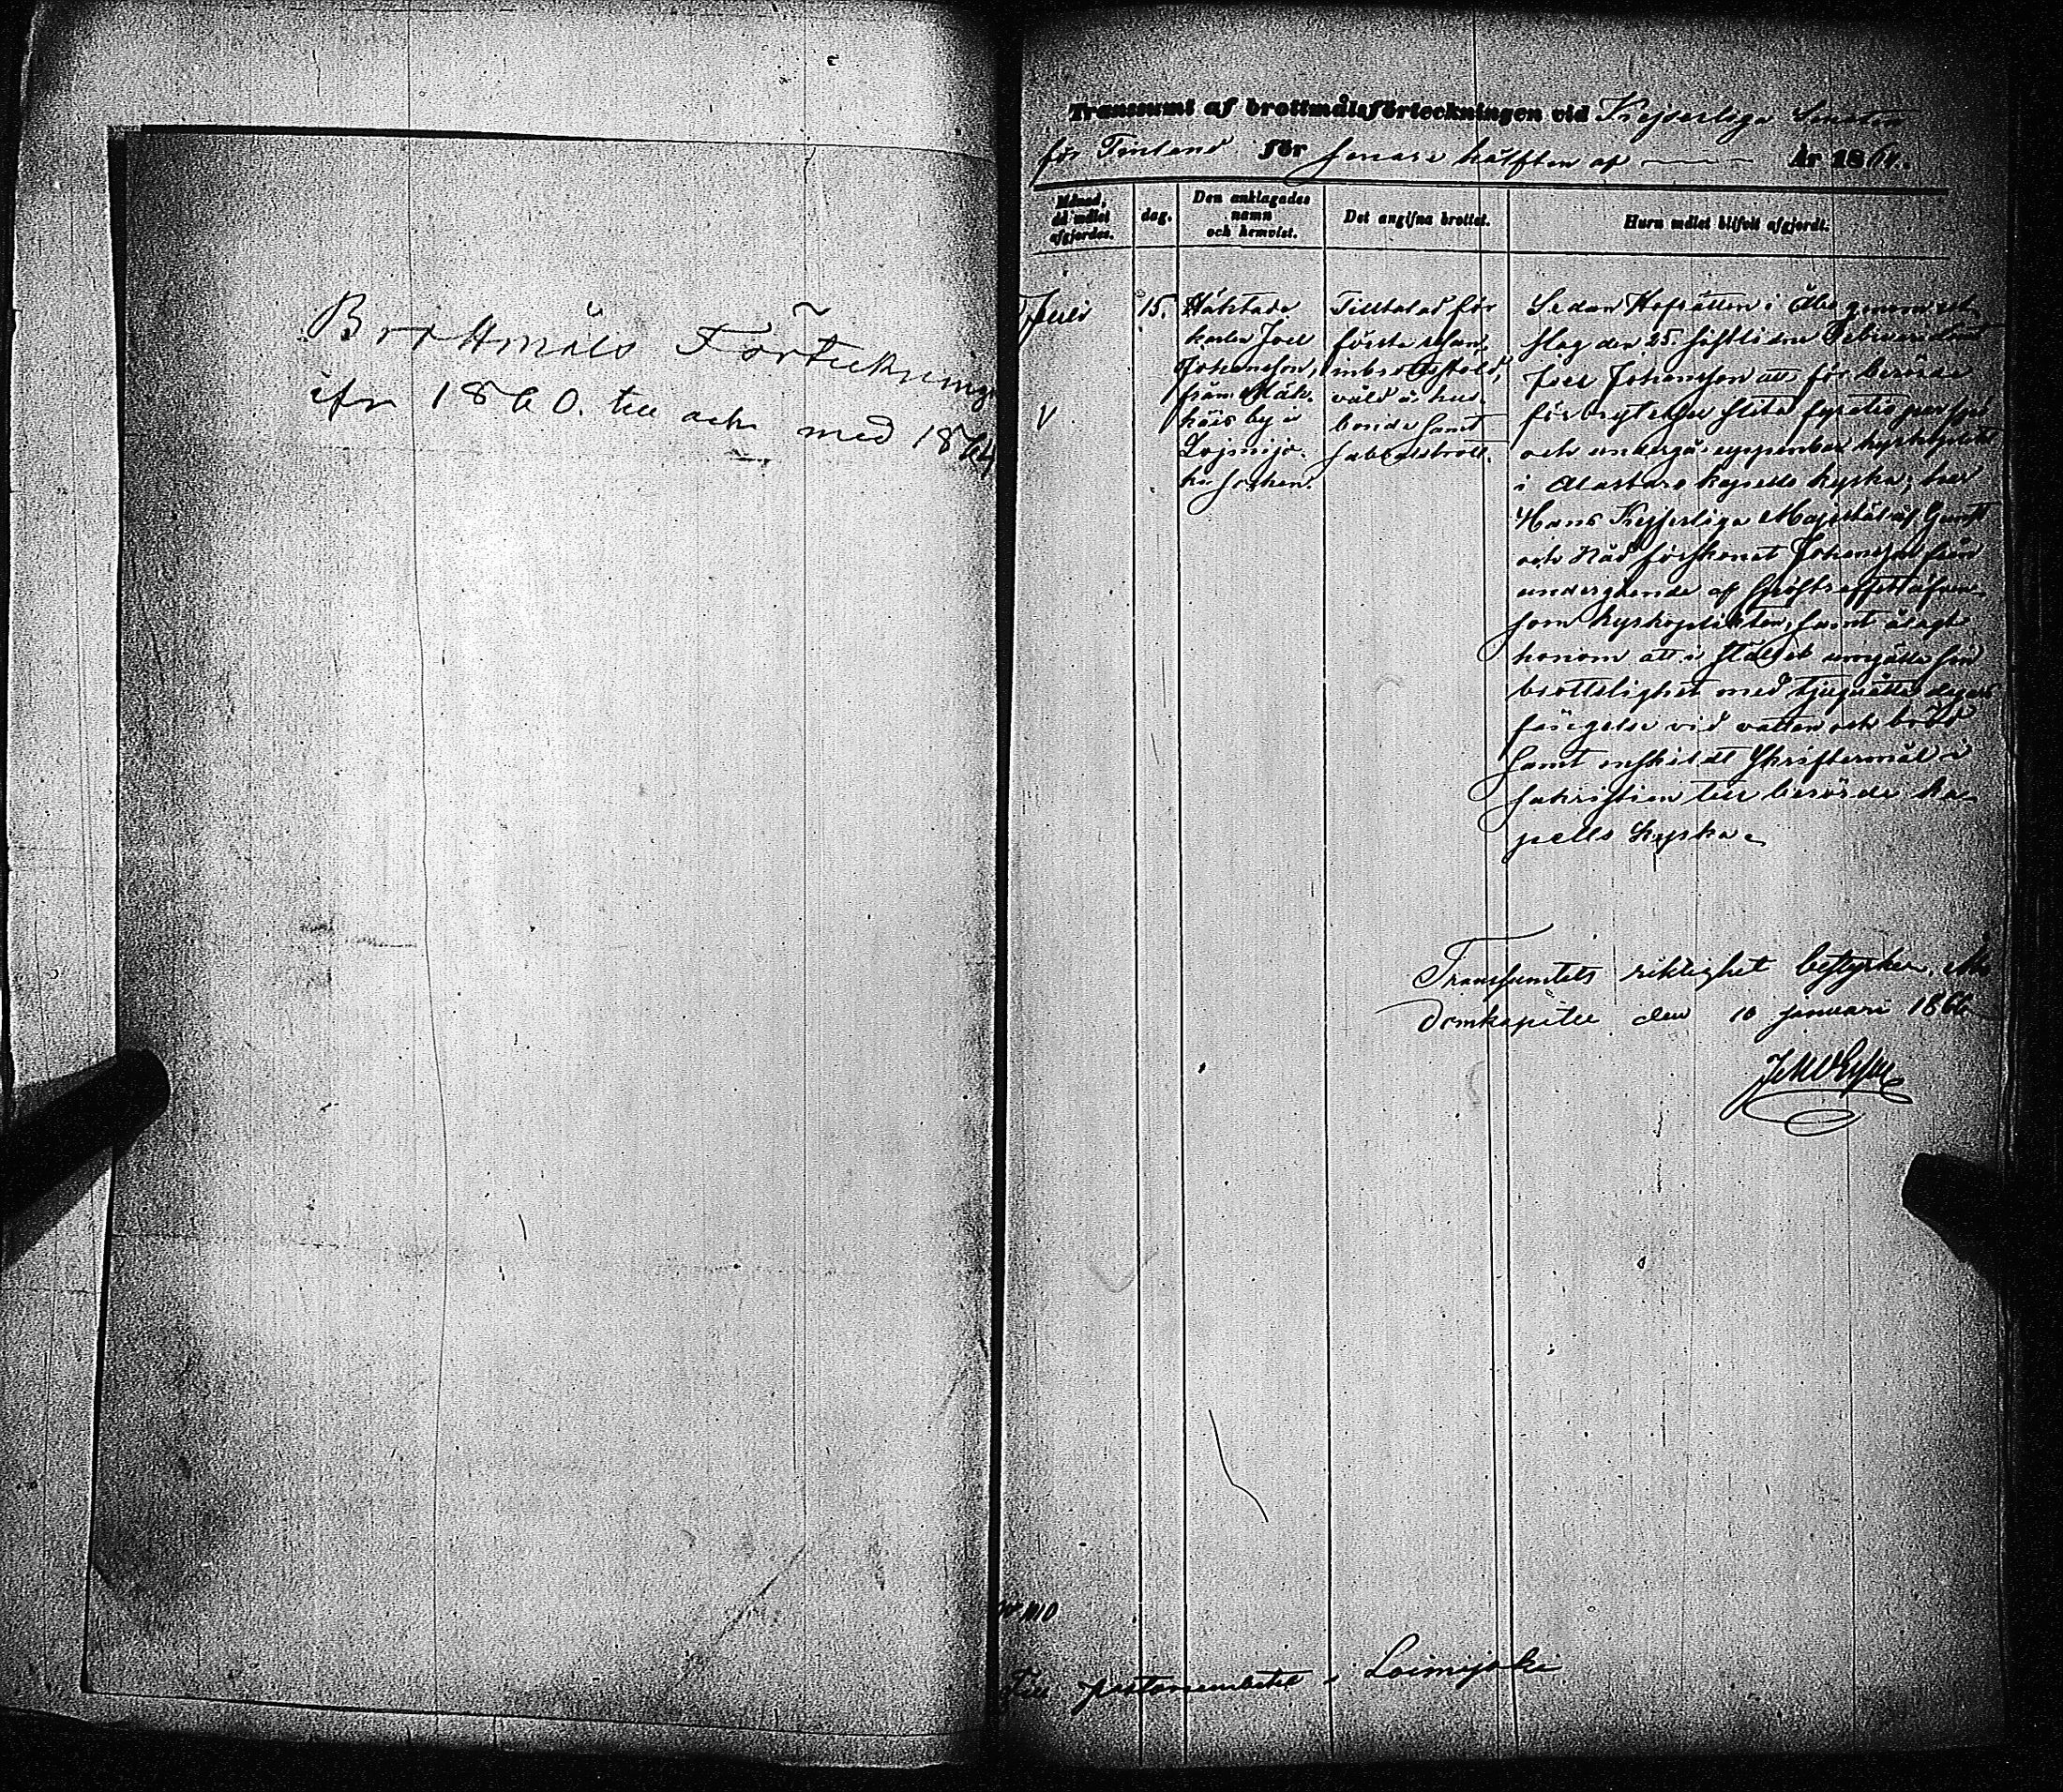 Brottmåls Förteckning
ifrn 1860. till och med 1864
Transsumt af brottmålsförteckningen vid Kejserliga Senaten
för Finland för senare hälften af År 1864.
Månad, då målet afgjordes.
dag.
Den anklagades namn och hemvist.
Det angifna brottet.
Huru målet blifvit afgjordt.
Juli
15.
Häktade
karlen Joel
Johansson,
från Mäk-
höis by i
Loimijo-
ki socken.
Tilltalad för
första resan
inbrottsstöld,
våld å hus-
bonde samt
sabbatsbrott.
Sedan Hofrätten i Åbo genom ut-
slag den 25. sistlidne Februari dömt
Joel Johansson att för berörde
förbrytelser slita fyratio par spö
och undergå uppenbar kyrkoplikt
i Alastaro kapells kyrka; har
Hans Kejserliga Majestät af Gunst
och Nåd förskonat Johansson från
undergående af spöstraffet äfven-
som kyrkoplikten, samt ålagt
honom att i stället umgälla sin
brottslighet med tjuguåtta dagars
fängelse vid vatten och bröd
samt enskildt Skriftermål i
sakristian till berörde ka-
pells kyrka.
Transsumtets riktighet bestyrker, Åbo
Domkapitel den 10 januari 1866
Till pastorsembetet i Loimijoki